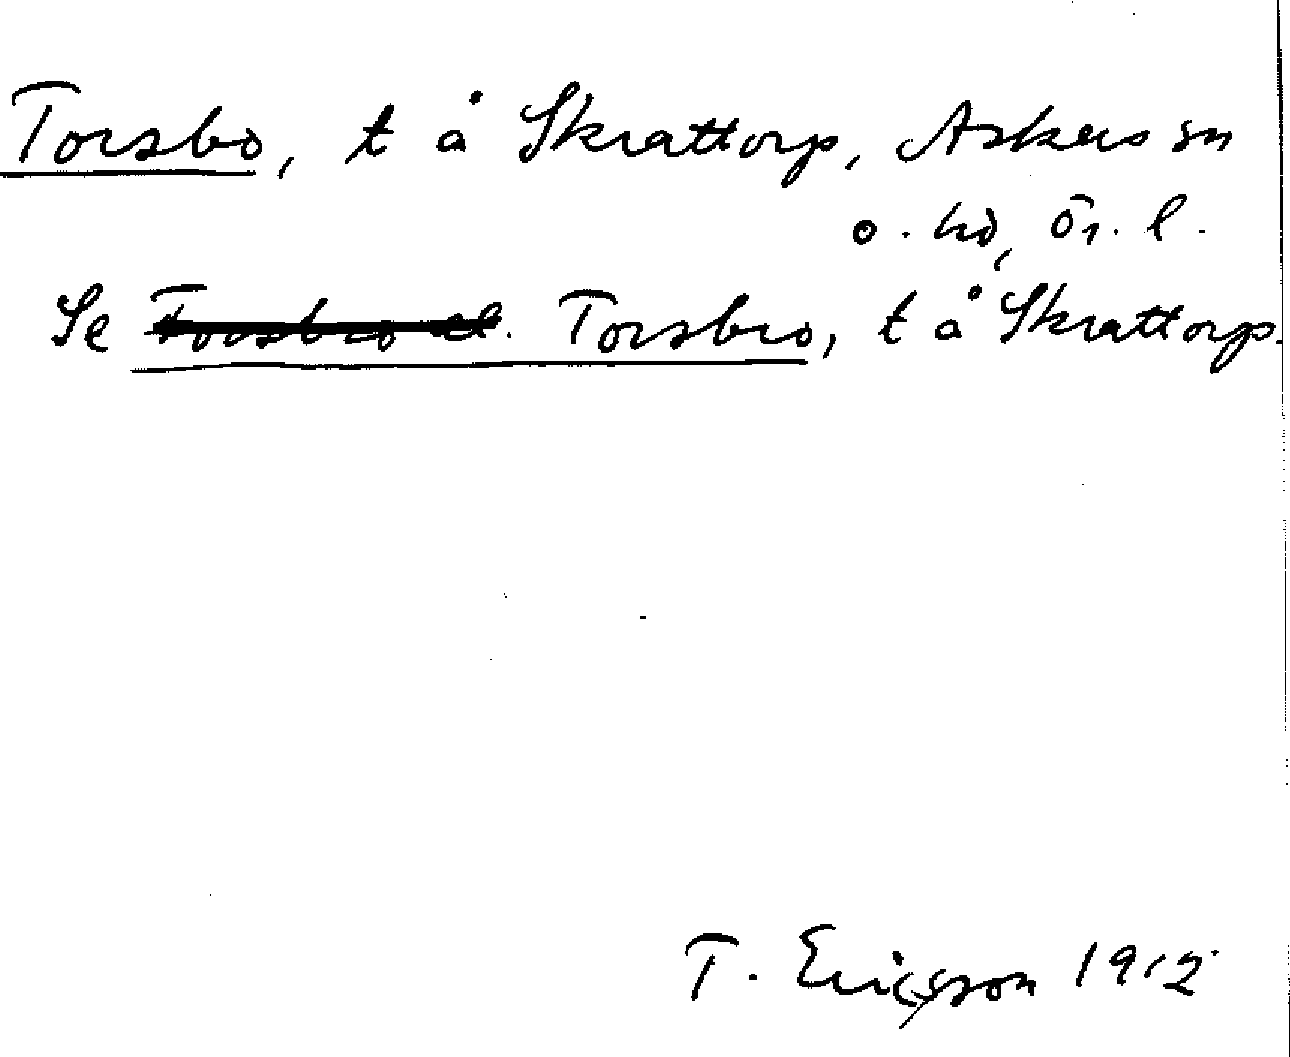 Torsbo, t å Skrattorp, Askers sn
o. hd, Ör. l.
Se Torsbro, t å Skrattorp.
T. Ericsson 1912